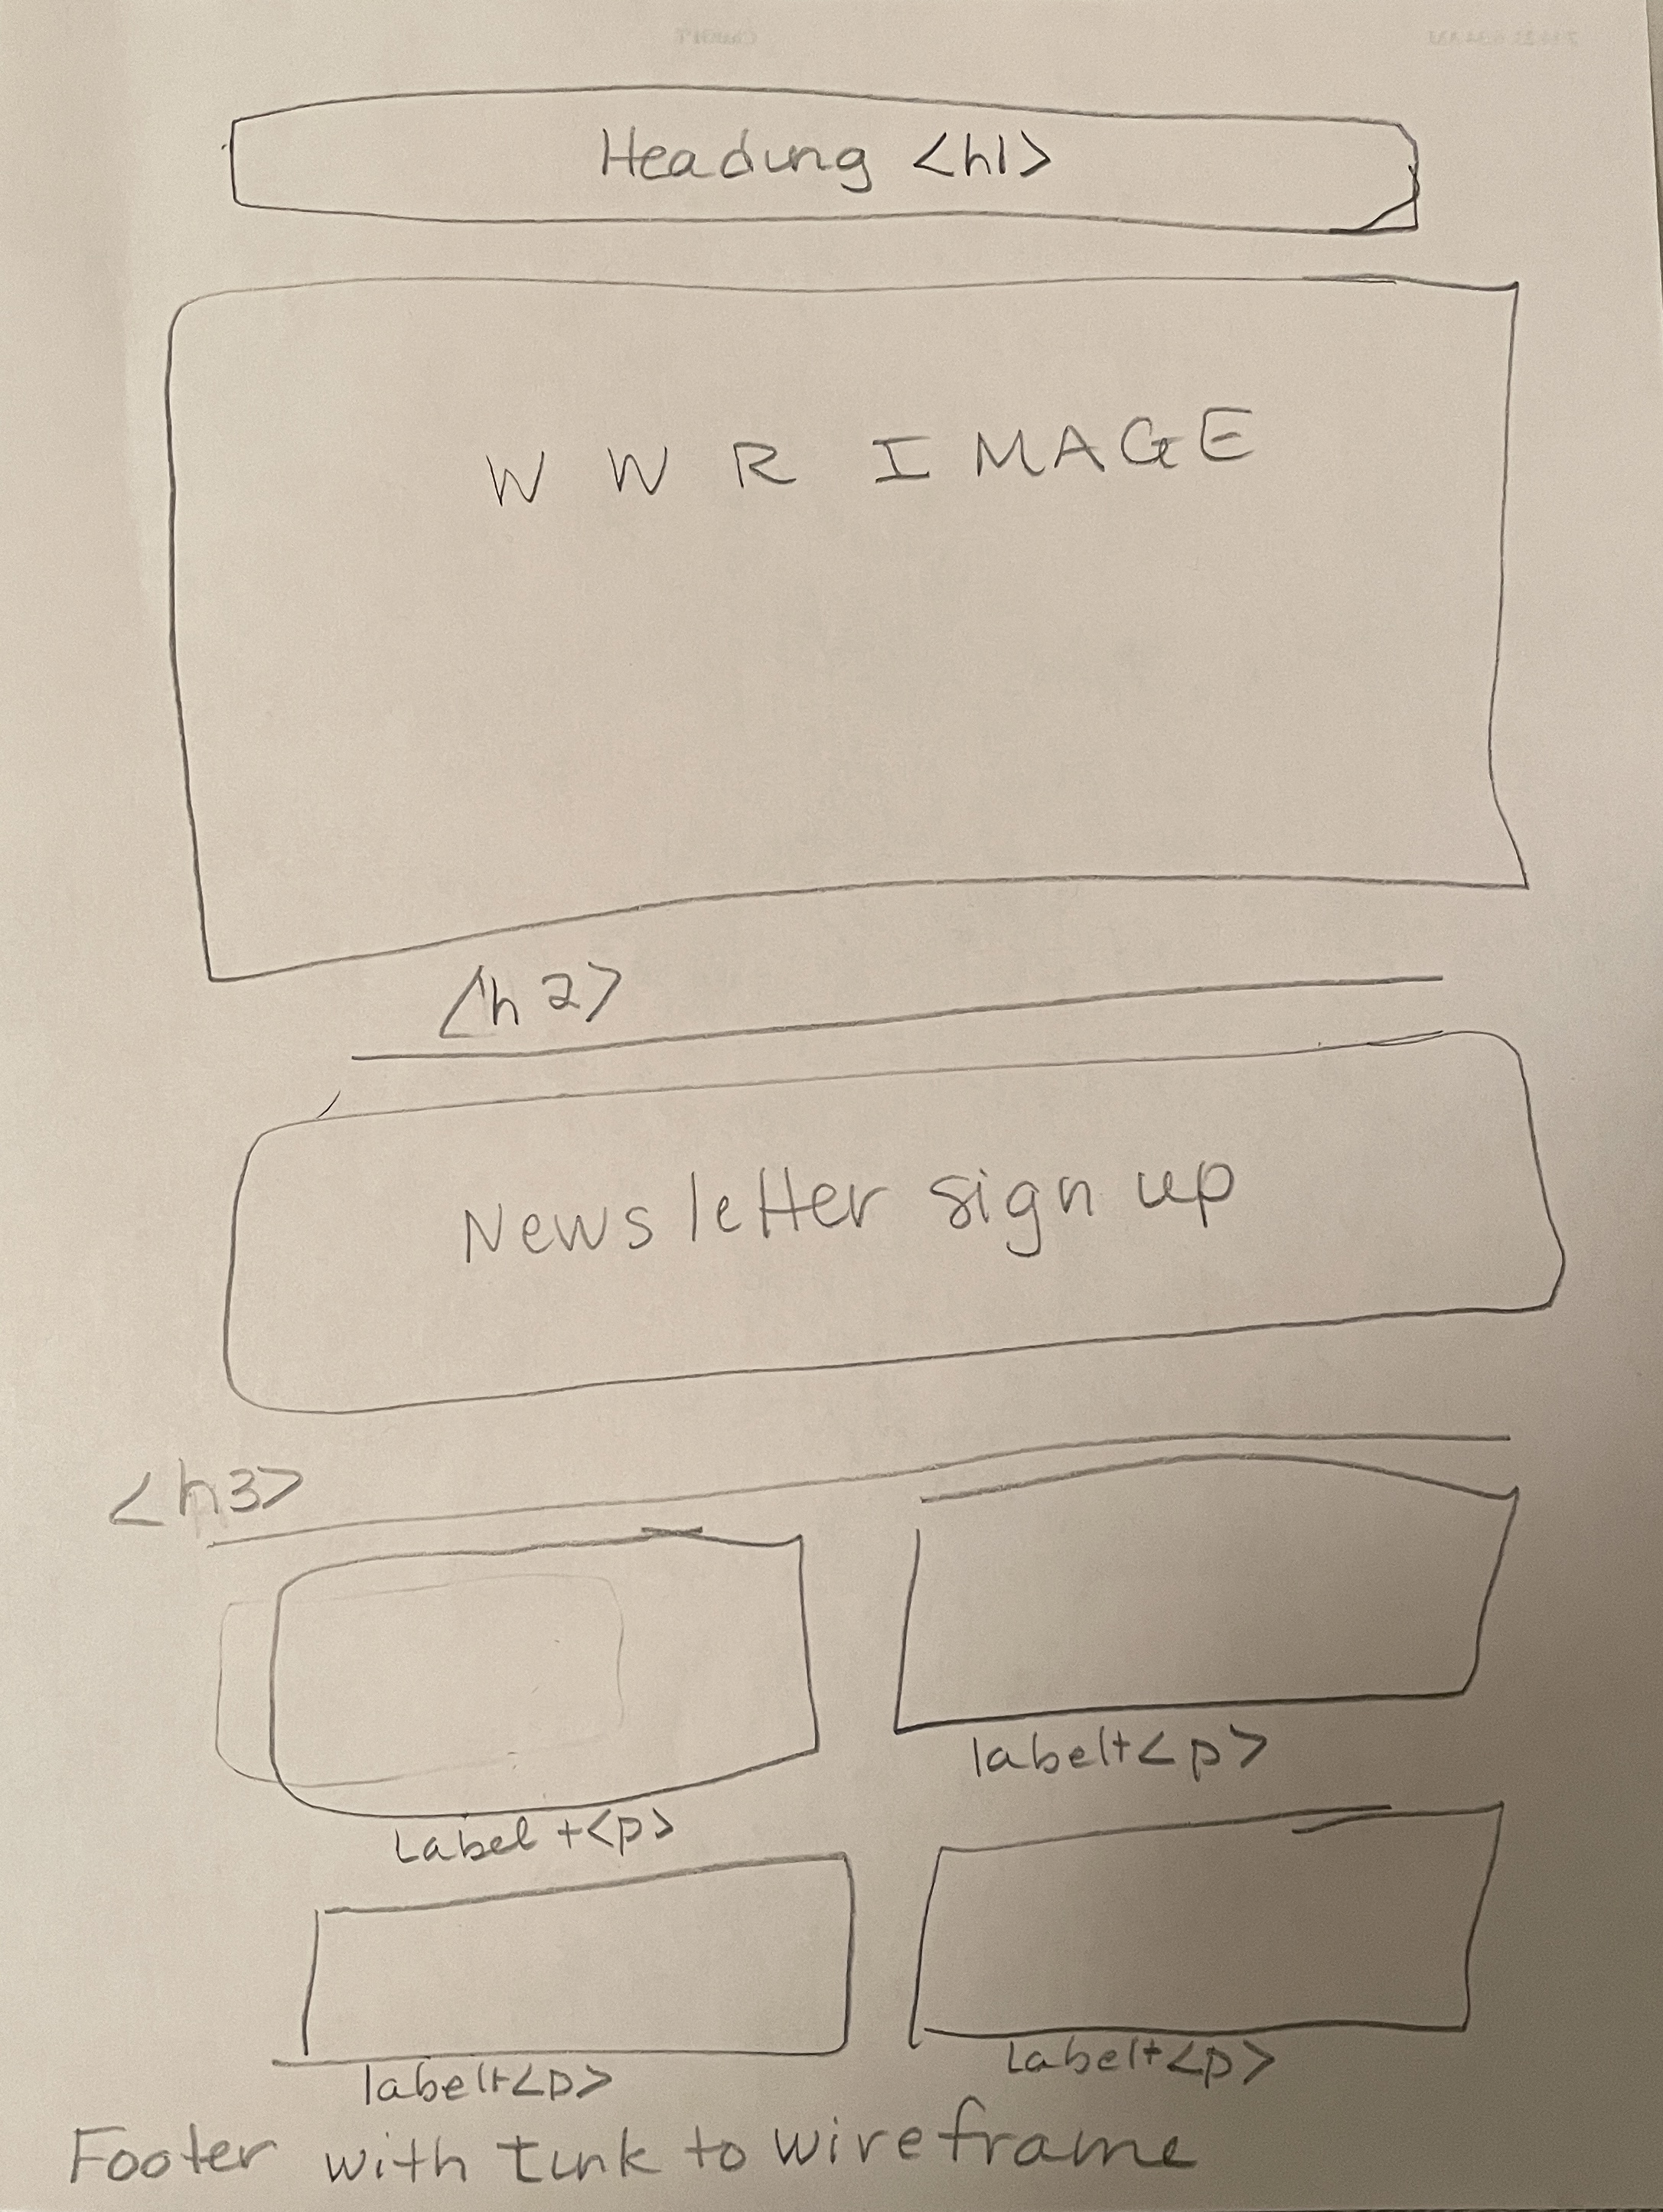 Heading <h1>
W W R IMAGE
<h2>
Newsletter sign up
<h3>
Label + <p>
label + <p>
label + <p>
Label + <p>
Footer with link to wireframe